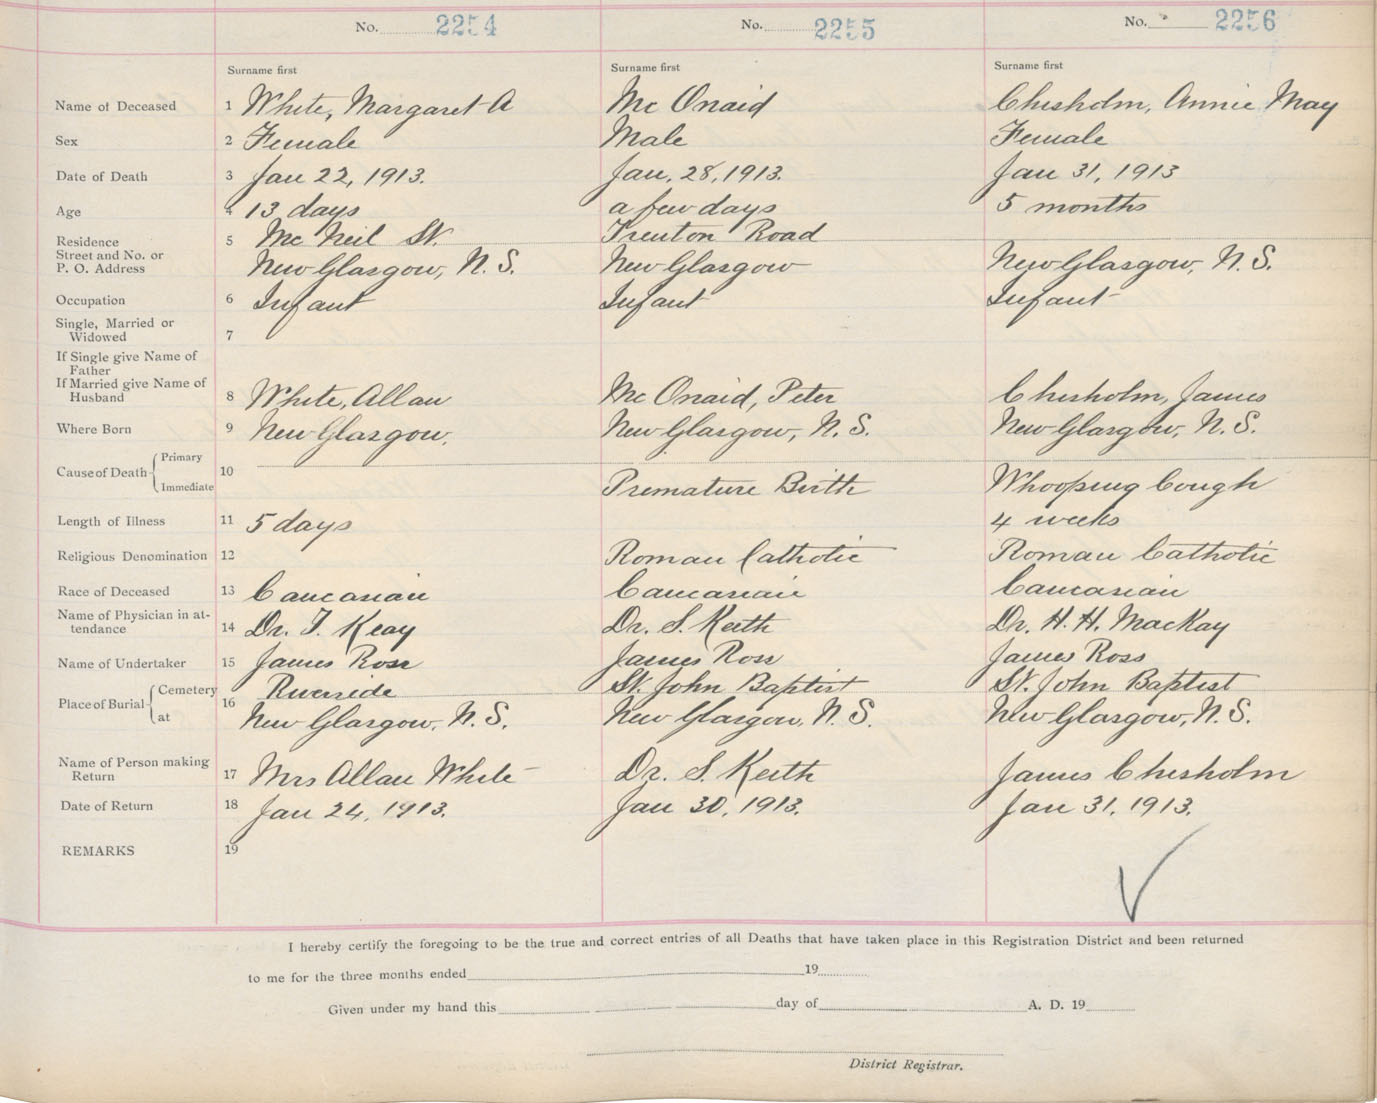 No. 2254 No. 2255 No. 2256
Surname first Surname first Surname first
Name of Deceased 1 White, Margaret A Mc Onaid Chisholm, Annie May
Sex 2 Female Male Female
Date of Death 3 Jan 22, 1913. Jan. 28, 1913. Jan 31, 1913
Age 4 13 days a few days 5 months
Residence 5 Mc Neil St. Trenton Road
Street and No. or
P. O. Address New Glasgow, N. S. New Glasgow New Glasgow, N. S.
Occupation 6 Infant Infant Infant
Single, Married or
Widowed 7
If Single give Name of
Father
If Married give Name of
Husband 8 White, Allan Mc Onaid, Peter Chisholm, James
Where Born 9 New Glasgow. New Glasgow, N. S. New Glasgow, N. S.
Primary
Cause of Death 10
Immediate Premature Birth Whooping Cough
Length of Illness 11 5 days 4 weeks
Religious Denomination 12 Roman Catholic Roman Catholic
Race of Deceased 13 Caucasian Caucasian Caucasian
Name of Physician in at-
tendance 14 Dr. J. Keay Dr. S. Keith Dr. H. H. MacKay
Name of Undertaker 15 James Ross James Ross James Ross
Cemetery Riverside St. John Baptist St. John Baptist
Place of Burial 16
at New Glasgow, N. S. New Glasgow, N. S. New Glasgow, N. S.
Name of Person making
Return 17 Mrs Allan White Dr. S. Keith James Chisholm
Date of Return 18 Jan 24, 1913. Jan 30, 1913. Jan 31, 1913.
REMARKS 19
I hereby certify the foregoing to be the true and correct entries of all Deaths that have taken place in this Registration District and been returned
to me for the three months ended 19
Given under my hand this day of A. D. 19
District Registrar.